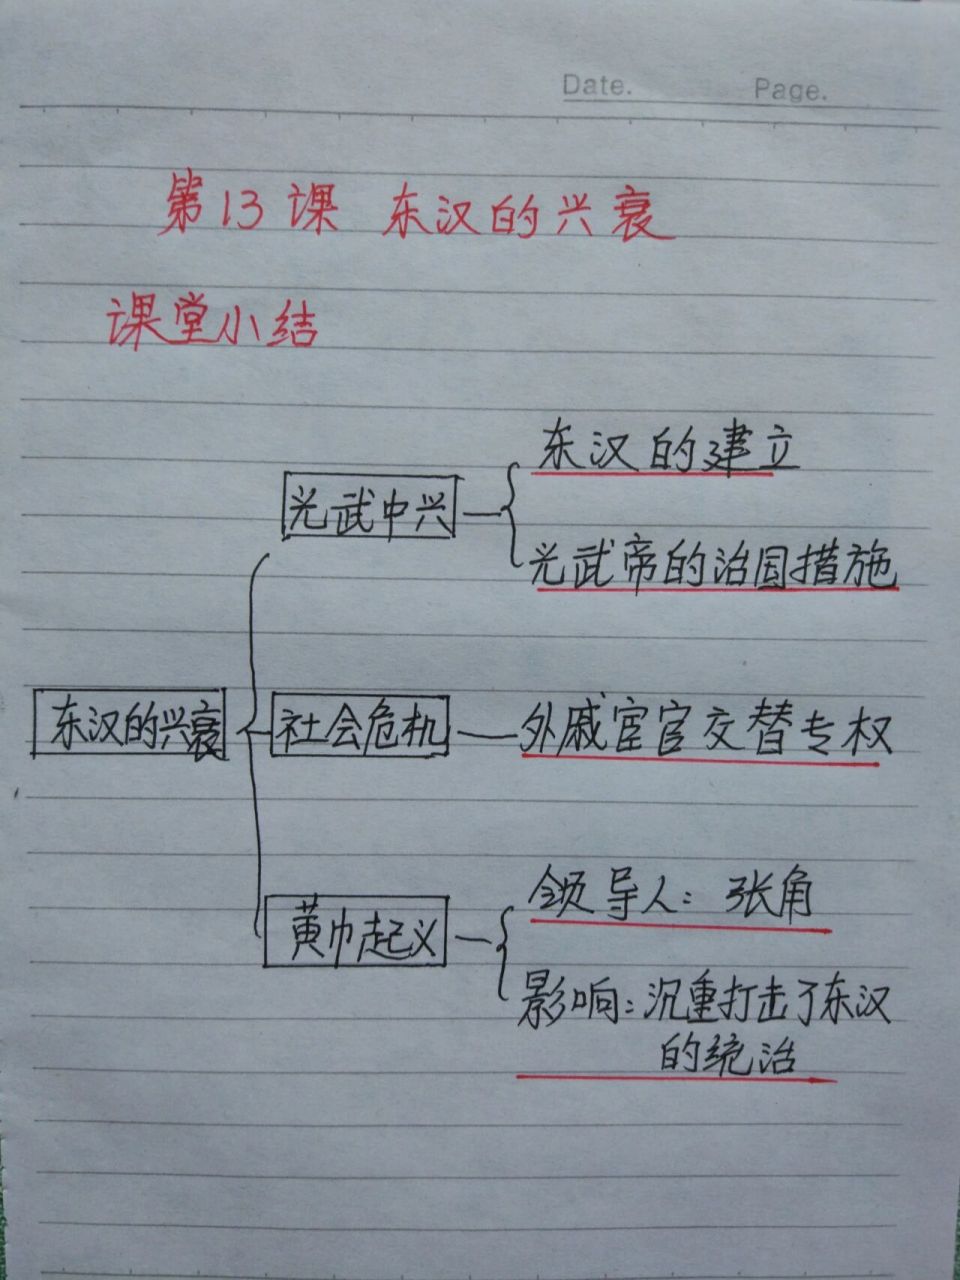 Date. Page.
第13课 东汉的兴衰
课堂小结
东汉的建立
光武中兴
光武帝的治国措施
东汉的兴衰
社会危机
外戚宦官交替专权
领导人：张角
黄巾起义
影响：沉重打击了东汉
的统治